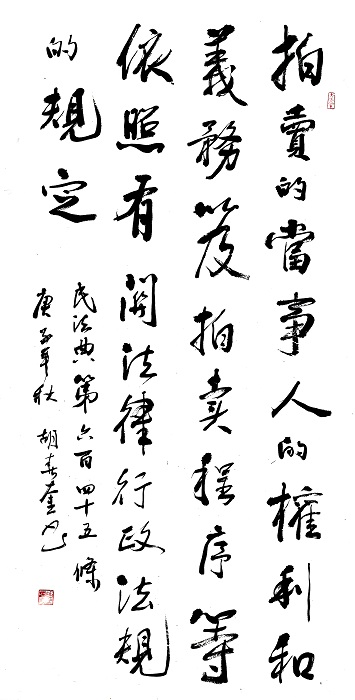 拍賣的當事人的權利和
義務以及拍卖程序等
依照有関法律行政法規
的規定
民法典第六百四十五條
庚子年秋 胡春奎书